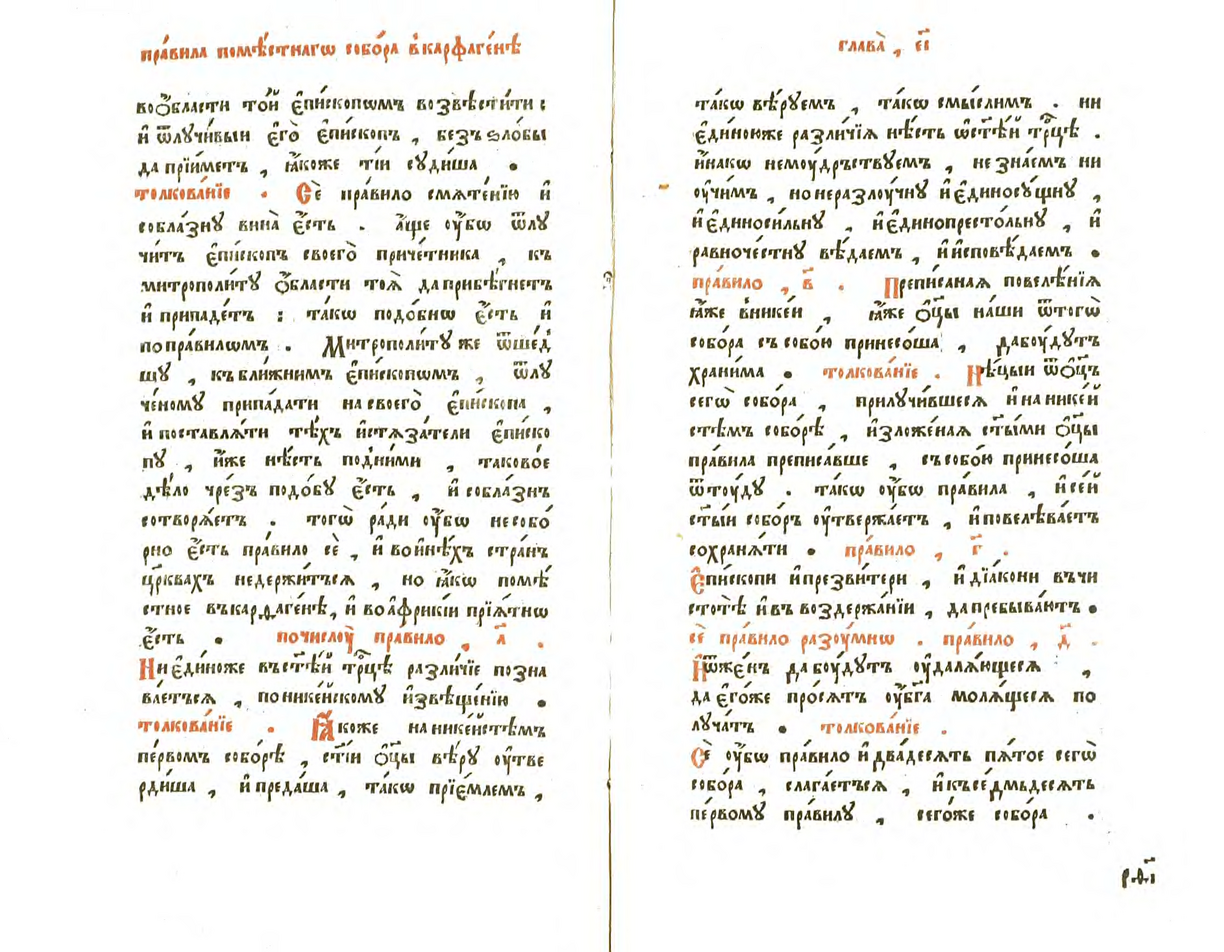 пра́вила помѣ́стнагѡ собо́ра в҆карѳаге́нѣ
воѻ҆́бласти то́й є҆пи́скопѡмъ возвѣсти́ти :
и҆ ѿлучи́выи є҆го̀ є҆пи́скопъ , безъ ѕло́бы
да прїи́метъ , ꙗ҆́коже ті́и суди́ша .
толкова́нїе . Сѐ пра́вило смѧте́нїю и҆
собла́зну вина̀ є҆́сть . а҆́ще ᲂу҆́бѡ ѿлу
чи́тъ є҆пи́скопъ своего̀ приче́тника , къ
митрополи́ту ѻ҆́бласти тоѧ̀ даприбѣ́гнетъ
и҆ припаде́тъ : та́кѡ подо́бнѡ є҆́сть и҆
попра́вилѡмъ . Митрополи́ту же ѿше́д
щу , къбли́жнимъ є҆пи́скопѡмъ , ѿлу
че́ному припа́дати насвоего̀ є҆пи́скопа ,
и҆ поставлѧ́ти тѣ́хъ и҆стѧза́тели є҆пи́ско
пу , и҆́же нѣ́сть под̾ни́ми , таково́е
дѣ́ло чре́зъ подо́бу є҆́сть , и҆ собла́знъ
сотворѧ́етъ . тогѡ̀ ра́ди ᲂу҆́бѡ несобо́
рно є҆́сть пра́вило сѐ , и҆ вои҆нѣ́хъ стра́нъ
цр҃квахъ недержи́тьсѧ , но ꙗ҆́кѡ помѣ́
стное въкарѳаге́нѣ , и҆ воа҆фрикі́и прїѧ́тнѡ
є҆́сть . почислоу̀ пра́вило , а҃ .
Ни є҆ди́ноже въст҃ѣ́й трⷪ҇цѣ разли́чїе позна
ва́етьсѧ , пониќейскому и҆звѣще́нїю .
толкова́нїе . Ꙗ҆́коже наникѣ́йстѣмъ
пе́рвомъ собо́рѣ , ст҃і́и ѻ҆ц҃ы̀ вѣ́ру ᲂу҆тве
рди́ша , и҆ преда́ша , та́кѡ прїе́млемъ ,
глава̀ , е҃і
та́кѡ вѣ́руемъ , та́кѡ смы́слимъ . ни
є҆ди́ноюже разли́чїѧ нѣ́сть ѡ҆ст҃ѣ́й трⷪ҇цѣ .
и҆на́кѡ немоу́дръствуемъ , не зна́емъ ни
ᲂу҆́чимъ , нонеразлоу́чну и҆ є҆диносу́щну ,
и҆ є҆диноси́льну , и҆ є҆динопресто́льну , и҆
равноче́стну вѣ́даемъ , и҆ и҆сповѣ́даемъ .
пра́вило , в҃ . Препи́саная повелѣ́нїя
ꙗ҆́же в҆нике́и , ꙗ҆́же ѻ҆ц҃ы̀ на́ши ѿтогѡ̀
собо́ра съ собо́ю принесо́ша , дабоу́дутъ
храни́ма . толкова́нїе . Нѣ́цыи ѿѻ҆ц҃ъ
сегѡ̀ собо́ра , прилучи́вшеся и҆ нанике́й
стѣмъ собо́рѣ , и҆зложе́ная ст҃ы́ми ѻ҆ц҃ы̀
пра́вила преписа́вше , съсобо́ю принесо́ша
ѿтоу́ду . та́кѡ ᲂу҆́бѡ пра́вила , и҆ се́й
ст҃ы́и собо́ръ ᲂу҆твержа́етъ , и҆ повелѣва́етъ
сохранѧ́ти . пра́вило , г҃ .
Є҆пи́скопи и҆ презви́тери , и҆ дїа́кони въчи
стотѣ̀ и҆ въ воздержа́нїи , да пребыва́ютъ .
сѐ пра́вило разоу́мнѡ . пра́вило , д҃ .
Н҆ѿже́нъ да боу́дутъ ᲂу҆далѧ́ющеся ,
да є҆го́же про́сѧтъ ᲂу҆бг҃а молѧ́щеся по
луча́тъ . толкова́нїе .
Сѐ ᲂу҆́бѡ пра́вило и҆ два́десѧть пѧ́тое сегѡ̀
собо́ра , слага́етьсѧ , и҆ къ се́дмьдесѧть
пе́рвому пра́вилу , сего́же собо́ра .